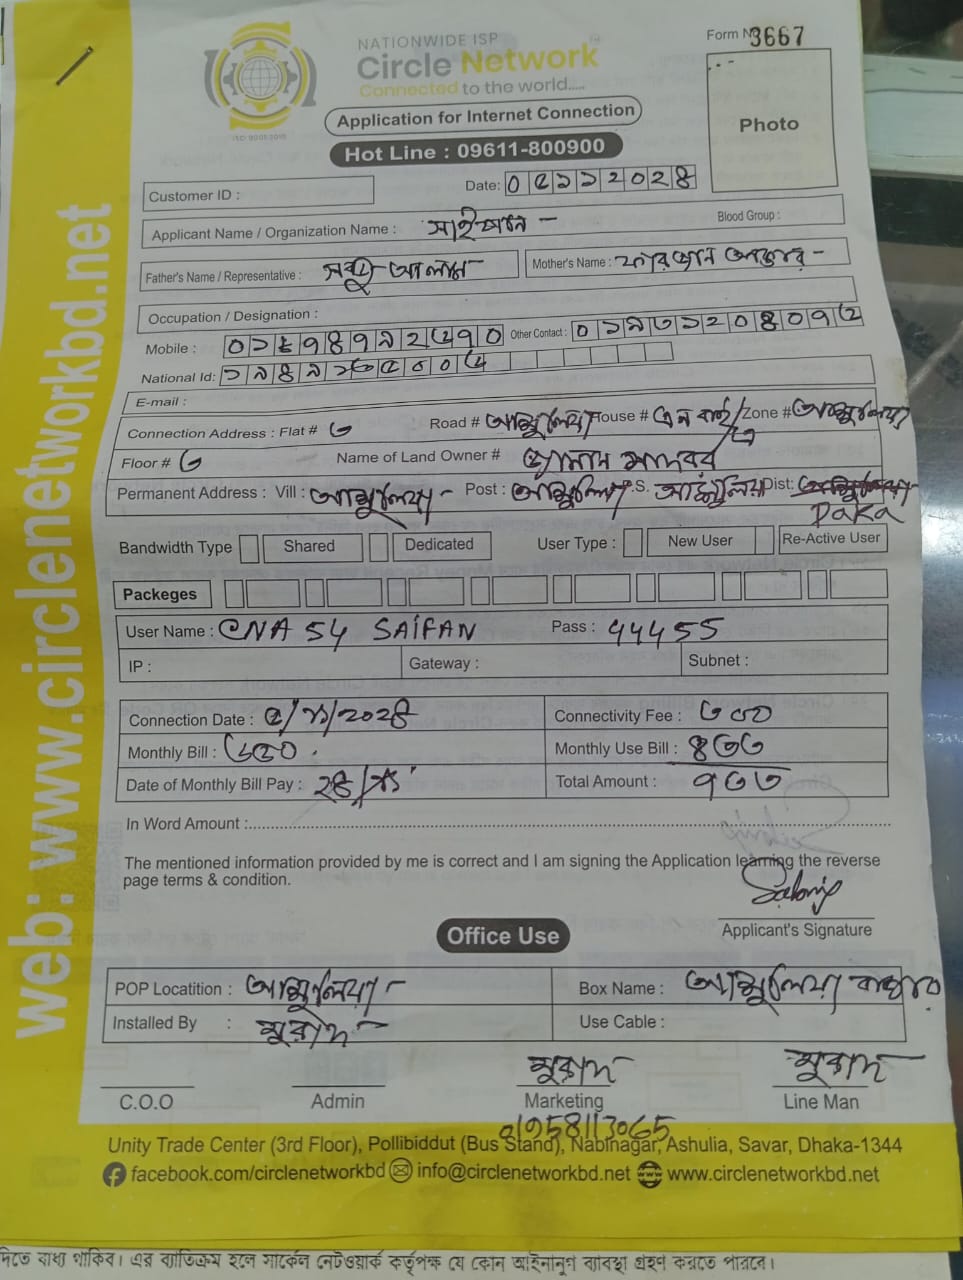 Form N 3667
NATIONWIDE ISP
Circle Network
Connected to the world.....
ISO 9001:2015
Application for Internet Connection
Photo
Hot Line : 09611-800900
Customer ID :
Date: ০৫১১২০২৪
Applicant Name / Organization Name : সাইফান - Blood Group :
Father's Name / Representative : আলম Mother's Name : ফারজান আক্তার -
Occupation / Designation :
Mobile : Other Contact :
National Id:
E-mail :
Connection Address : Flat # ৩ Road # আশুলিয়া House # Zone # আশুলিয়া
Floor # ৩ Name of Land Owner #
Permanent Address : Vill : আশুলিয়া - Post : আশুলিয়া P.S. আশুলিয়া Dist:
DaKa
Bandwidth Type Shared Dedicated User Type : New User Re-Active User
Packeges
User Name : CNA 54 SAIFAN Pass : 44455
IP : Gateway : Subnet :
Connection Date : ৫/১১/২০২৪ Connectivity Fee : ৩০০
Monthly Bill : Monthly Use Bill : ৪০০
Date of Monthly Bill Pay : Total Amount : ৭০০
In Word Amount :
The mentioned information provided by me is correct and I am signing the Application learning the reverse
page terms & condition.
Applicant's Signature
Office Use
POP Locatition : আশুলিয়া - Box Name : আশুলিয়া বাজার
Installed By : মুরাদ Use Cable :
মুরাদ মুরাদ
C.O.O Admin Marketing Line Man
01958113065
Unity Trade Center (3rd Floor), Pollibiddut (Bus Stand), Nabinagar, Ashulia, Savar, Dhaka-1344
facebook.com/circlenetworkbd info@circlenetworkbd.net www.circlenetworkbd.net
web: www.circlenetworkbd.net
দিতে বাধ্য থাকিব। এর ব্যতিক্রম হলে সার্কেল নেটওয়ার্ক কর্তৃপক্ষ যে কোন আইনানুগ ব্যবস্থা গ্রহণ করতে পারবে।